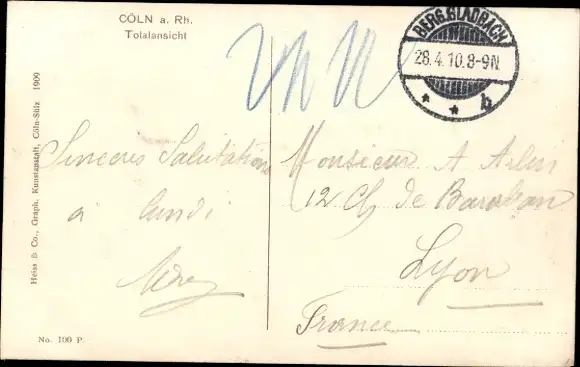 CÖLN a. Rh.
Totalansicht
BERG.GLADBACH
28.4.10.8-9N
* * b
Heiss & Co., Graph. Kunstanstalt, Cöln-Sülz 1909
Sinceres Salutations
à lundi
Monsieur A
12 Ch de Baraban
Lyon
France
No. 100 P.